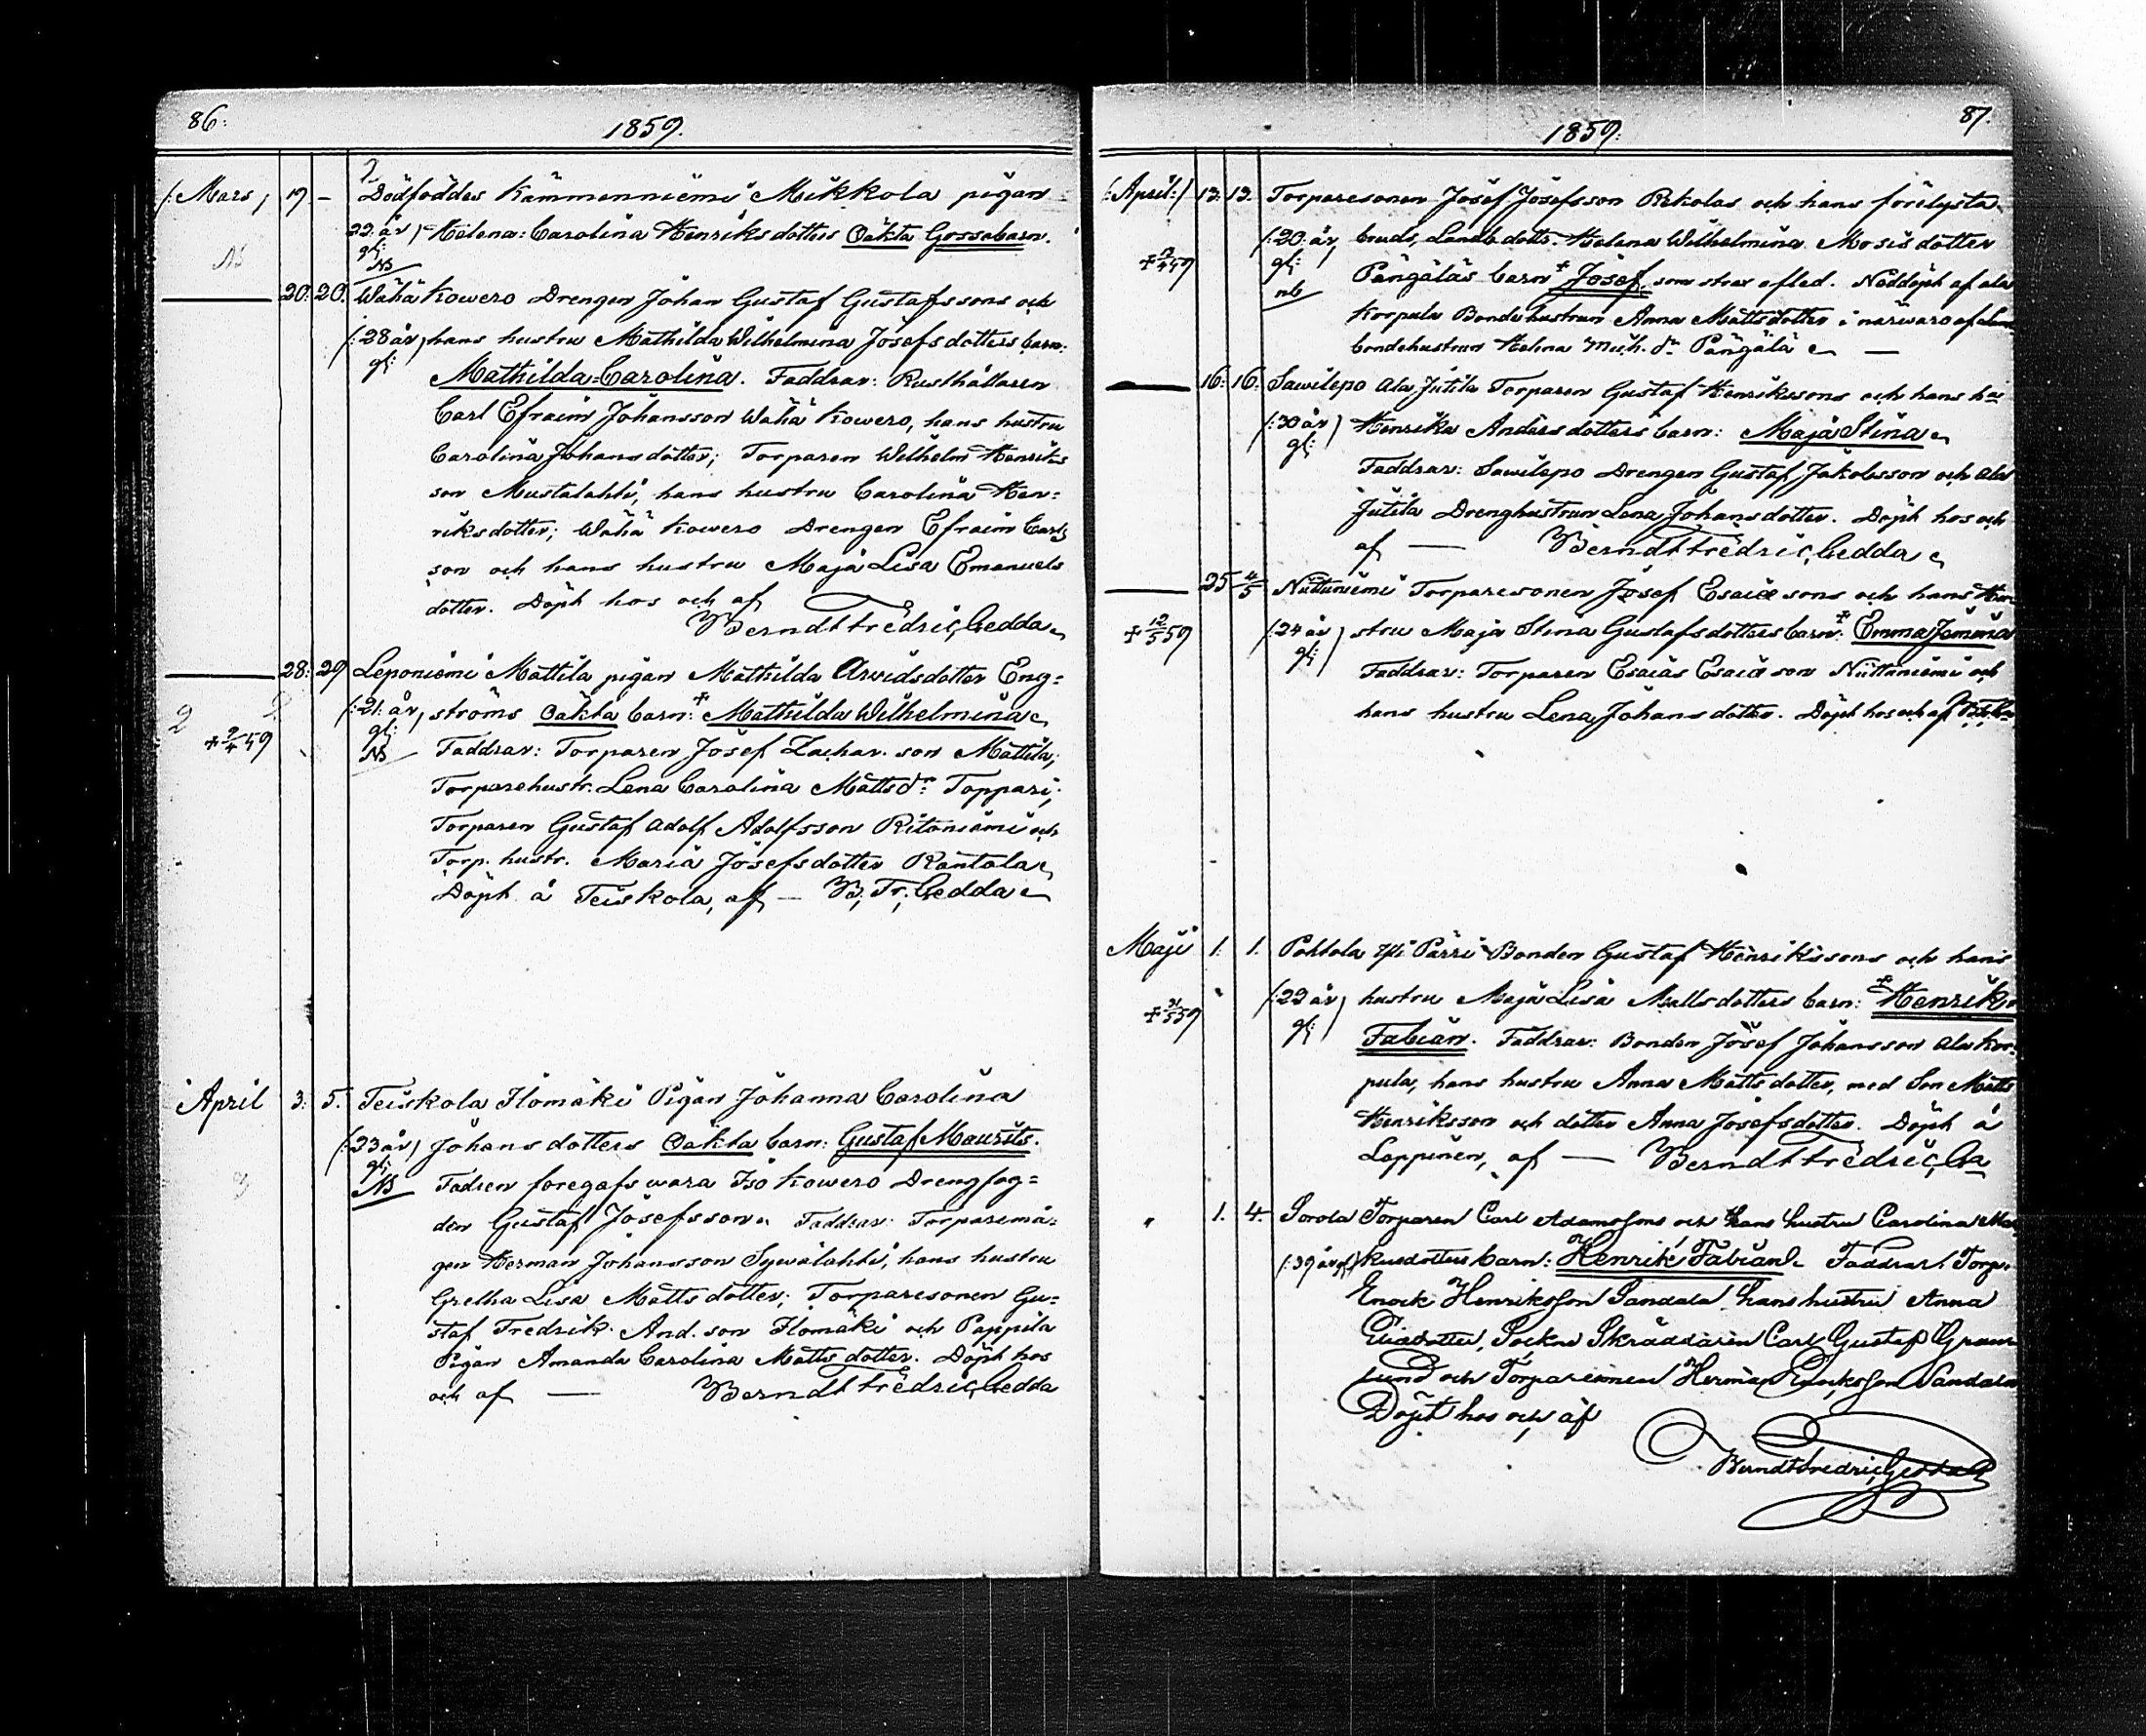 86.
1859.
(: Mars, 19. – Dödföddes Kämmenniemi Mikkola pigan
22 år) Helena Carolina Henriksdotters Oäkta Gossebarn.
gl:
NB
20. 20. Wähä Kowero Drengen Johan Gustaf Gustafssons och
(: 28 år) hans hustru Mathilda Wilhelmina Josefsdotters barn:
gl: Mathilda Carolina. Faddrar: Rusthållaren
Carl Efraim Johansson Wähä Kowero, hans hustru
Carolina Johansdotter; Torparen Wilhelm Henriks
son Mustalahti, hans hustru Carolina Hen=
riksdotter; Wähä Kowero Drengen Efraim Carls
son och hans hustru Maja Lisa Emanuels
dotter. Döpt hos och af
Berndt Fredric Gedda
28. 29 Leponiemi Mattila pigan Mathilda Arvidsdotter Eng=
(: 21 år) ströms Oäkta barn: + Mathilda Wilhelmina
gl:
2 + 2/4 59 NB Faddrar: Torparen Josef Zachar. son Mattila;
Torparehustr. Lena Carolina Matts dr Toppari;
Torparen Gustaf Adolf Adolfsson Ritoniemi och
Torp. hustr. Maria Josefsdotter Rantala
Döpt å Teiskola, af — B. Fr. Gedda
April 3. 5. Teiskola Ilomäki Pigan Johanna Carolina
(: 23 år) Johansdotters Oäkta barn: Gustaf Maurits.
gl:
3 NB Fadren föregafs wara Iso Kowero Drengfog=
den Gustaf Josefsson. Faddrar: Torparemå=
gen Herman Johansson Sywälahti, hans hustru
Gretha Lisa Mattsdotter; Torparesonen Gu=
staf Fredrik And. son Ilomäki och Pappila
Pigan Amanda Carolina Mattsdotter. Döpt hos
och af — Berndt Fredric Gedda
87.
1859.
(: April :) 13. 13. Torparesonen Josef Josefsson Rekolas och hans förelysta
(: 20 år, bruds, Landb. dottr. Helena Wilhelmina Mosisdotter
+ 13/4 59 gl: Pängäläs barn + Josef, som strax afled. Nöddöpt af ala
nb Korpula Bondehustrun Anna Mattsdotter i närwaro af
bondehustrun Helena Mich. dr Pängälä
16. 16. Sawilepo Ala Jutila Torparen Gustaf Henrikssons och hans hu
(: 30 år) Henrika Andersdotters barn: Maja Stina
gl:
Faddrar: Sawilepo Drengen Gustaf Jakobsson och Ala
Jutila Drenghustrun Lena Johansdotter. Döpt hos och
af — Berndt Fredric Gedda
25 4/5 Niittuniemi Torparesonen Josef Esaiæ sons och hans Hu
+ 12/5 59 (: 24 år stru Maja Stina Gustafsdotters barn: + Emma Jemina
gl: ) Faddrar: Torparen Esaias Esaiæ son Niittuniemi och
hans hustru Lena Johansdotter. Döpt hos och af
Maji 1. 1. Pohtola Yli Pärri Bonden Gustaf Henrikssons och hans
+ 31/5 59 (: 22 år) hustru Maja Lisa Mattsdotters barn: + Henrik
gl: Fabian. Faddrar: Bonden Josef Johansson Ala Kor=
pula, hans hustru Anna Mattsdotter, med Son Matts
Henriksson och dotter Anna Josefsdotter. Döpt å
Loppinen, af — Berndt Fredric Ga
" 1. 4. Sorola Torparen Carl Adamssons och hans hustru Carolina Mar
(: 39 år gl:) kusdotters barn: Henrik Fabian. Faddrar: Torp.
Enock Henriksson Sandala, hans hustru Anna
Eliædotter, Sockne Skräddaren Carl Gustaf Gran
lund och Torparesonen Herman Enocksson Sandala
Döpt hos och af
Berndt Fredric Gedda